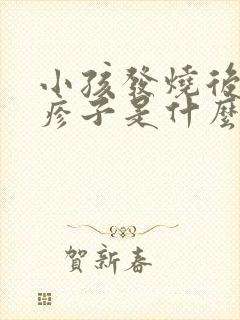 小孩發燒後
疹子是什麼
賀新春